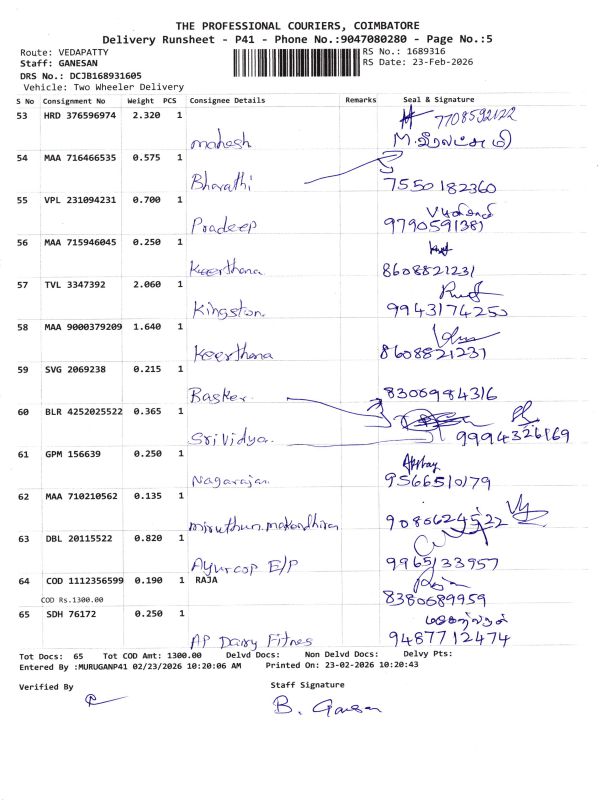 THE PROFESSIONAL COURIERS, COIMBATORE
Delivery Runsheet - P41 - Phone No.:9047080280 - Page No.:5
Route: VEDAPATTY
RS No.: 1689316
Staff: GANESAN
RS Date: 23-Feb-2026
DRS No.: DCJB168931605
Vehicle: Two Wheeler Delivery
S No Consignment No Weight PCS Consignee Details Remarks Seal & Signature
53 HRD 376596974 2.320 1 7708592122
mahesh
54 MAA 716466535 0.575 1
Bharathi 7550182360
55 VPL 231094231 0.700 1
Pradeep 9790591381
56 MAA 715946045 0.250 1
Keerthana 8608821231
57 TVL 3347392 2.060 1
Kingston 9943174250
58 MAA 9000379209 1.640 1
Keerthana 8608821231
59 SVG 2069238 0.215 1
Basker 8306984316
60 BLR 4252025522 0.365 1
Srividya 9994326169
61 GPM 156639 0.250 1 Akshay
Nagarajan 9566510179
62 MAA 710210562 0.135 1
9080624522
63 DBL 20115522 0.820 1
Ayurcop E/P 9965133957
64 COD 1112356599 0.190 1 RAJA Raja
COD Rs.1300.00 8380689959
65 SDH 76172 0.250 1
AP Dairy Fitnes 9487712474
Tot Docs: 65 Tot COD Amt: 1300.00 Delvd Docs: Non Delvd Docs: Delvy Pts:
Entered By :MURUGANP41 02/23/2026 10:20:06 AM Printed On: 23-02-2026 10:20:43
Verified By Staff Signature
B. Ganesan